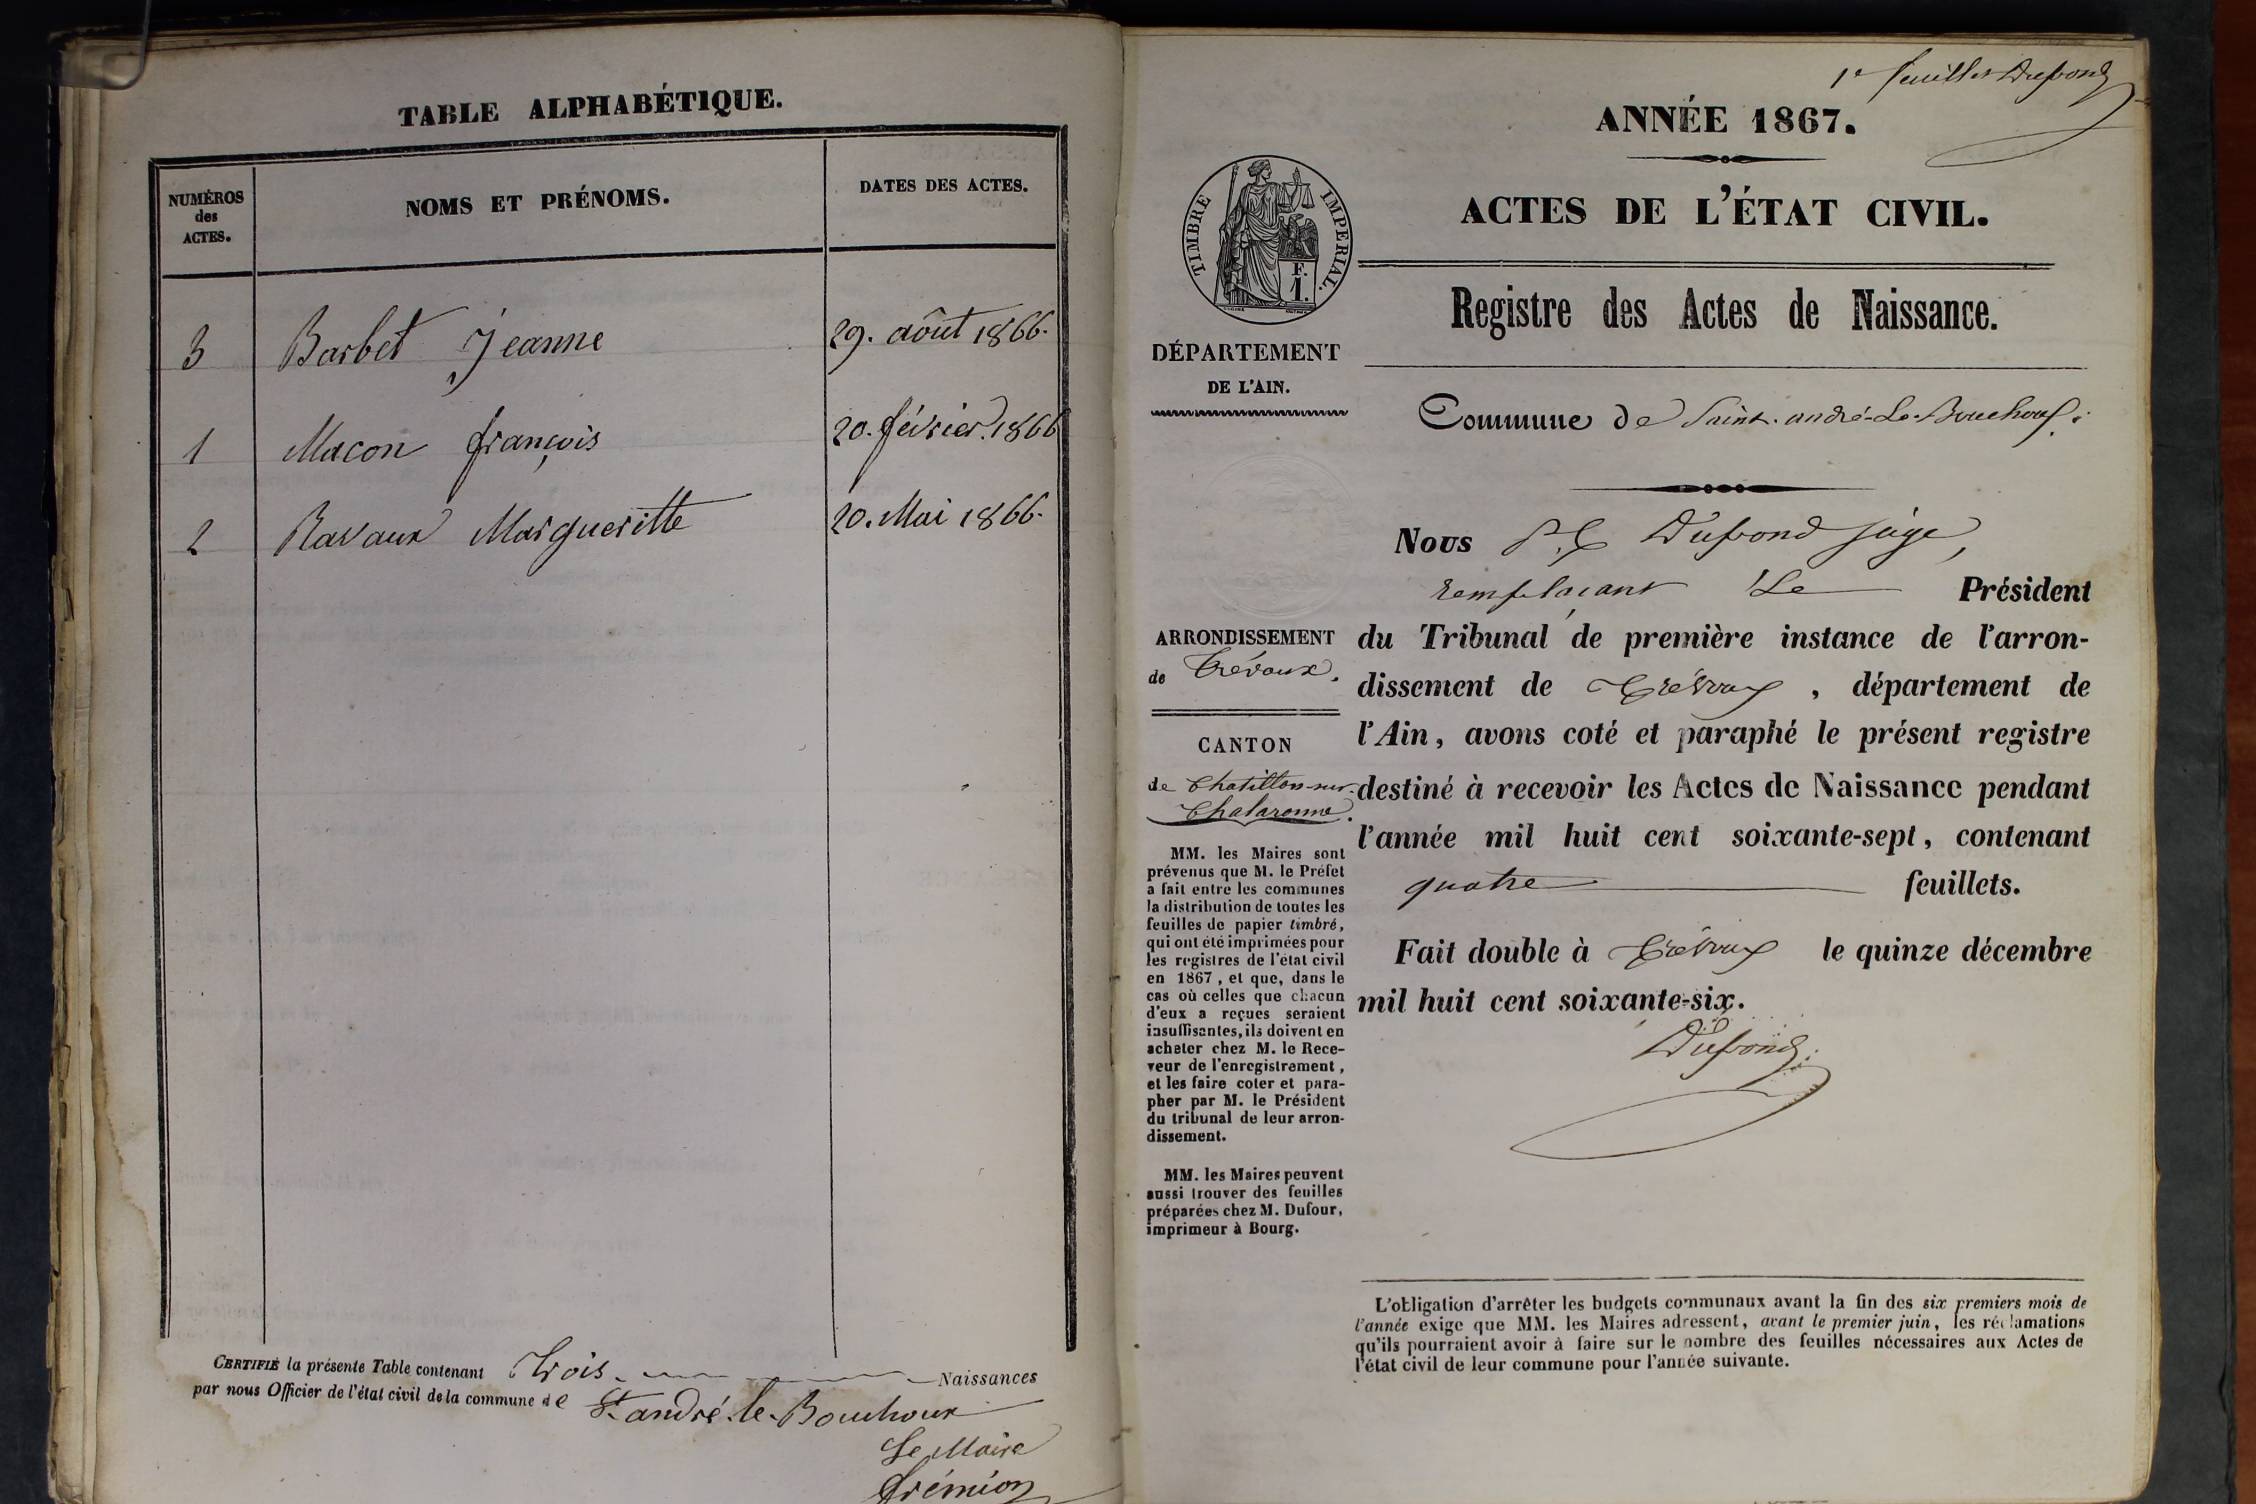 TABLE ALPHABÉTIQUE.
NUMÉROS
des
ACTES.
NOMS ET PRÉNOMS.
DATES DES ACTES.
3 Barbet Jeanne 29. août 1866.
1 Macon françois 20. février. 1866
2 Ravaux Margueritte 20. Mai 1866.
CERTIFIÉ la présente Table contenant Trois. Naissances
par nous Officier de l'état civil de la commune de St. andré. le. Bouchoux
Le Maire
frémion
1er feuillet Dufrond
ANNÉE 1867.
ACTES DE L'ÉTAT CIVIL.
TIMBRE IMPERIAL.
F.
1.
Registre des Actes de Naissance.
DÉPARTEMENT
DE L'AIN.
Commune de Saint-andré-Le-Bouchoux.
Nous Dufrond juge,
remplaçant Le Président
ARRONDISSEMENT
de Trévoux.
du Tribunal de première instance de l'arron-
dissement de Trévoux, département de
l'Ain, avons coté et paraphé le présent registre
destiné à recevoir les Actes de Naissance pendant
l'année mil huit cent soixante-sept, contenant
quatre feuillets.
Fait double à Trévoux le quinze décembre
mil huit cent soixante-six.
Dufrond
CANTON
de Chatillon-sur-
Chalaronne.
MM. les Maires sont
prévenus que M. le Préfet
a fait entre les communes
la distribution de toutes les
feuilles de papier timbré,
qui ont été imprimées pour
les registres de l'état civil
en 1867, et que, dans le
cas où celles que chacun
d'eux a reçues seraient
insuffisantes, ils doivent en
acheter chez M. le Rece-
veur de l'enregistrement,
et les faire coter et para-
pher par M. le Président
du tribunal de leur arron-
dissement.
MM. les Maires peuvent
aussi trouver des feuilles
préparées chez M. Dufour,
imprimeur à Bourg.
L'obligation d'arrêter les budgets communaux avant la fin des six premiers mois de
l'année exige que MM. les Maires adressent, avant le premier juin, les réclamations
qu'ils pourraient avoir à faire sur le nombre des feuilles nécessaires aux Actes de
l'état civil de leur commune pour l'année suivante.